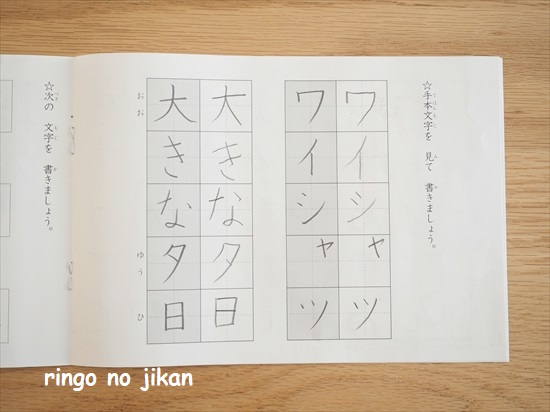 ☆手本文字を 見て 書きましょう。
てほんもじ み か
ワイシャツ
ワイシャツ
大きな夕日
大きな夕日
おお ゆう ひ
☆次の 文字を 書きましょう。
つぎ もじ か
ringo no jikan